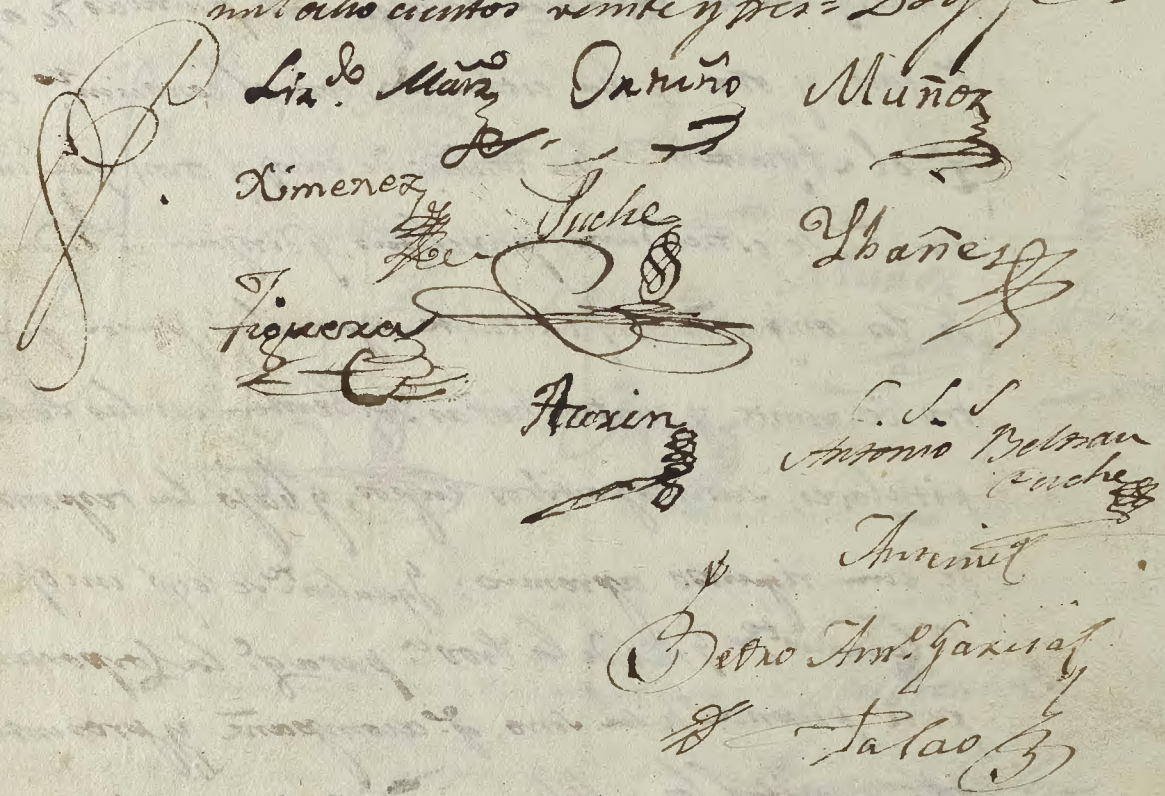 mil ocho cientos veinte y tres = Doy fe
Liz.do Mārz Ortuño Muñoz
Ximenez Puche Ybañez
Figuera
Azorin
S. S. S
Antonio Beltran
Puche
Ante mi
Pedro Ant.o Garcia
y
Palao